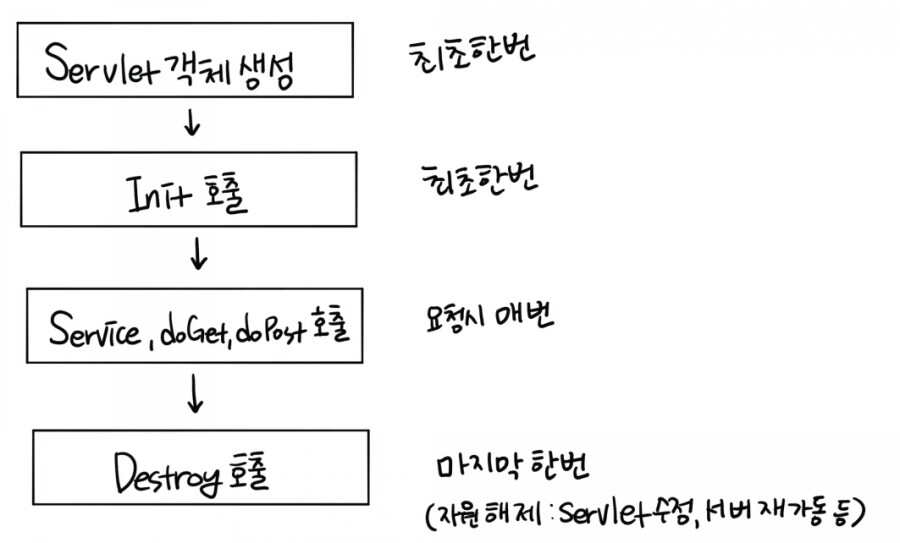 Servlet 객체 생성
최초한번
Init 호출
최초한번
Service, doGet, doPost 호출
요청시 매번
Destroy 호출
마지막 한번
(자원 해제 : Servlet 수정, 서버 재가동 등)